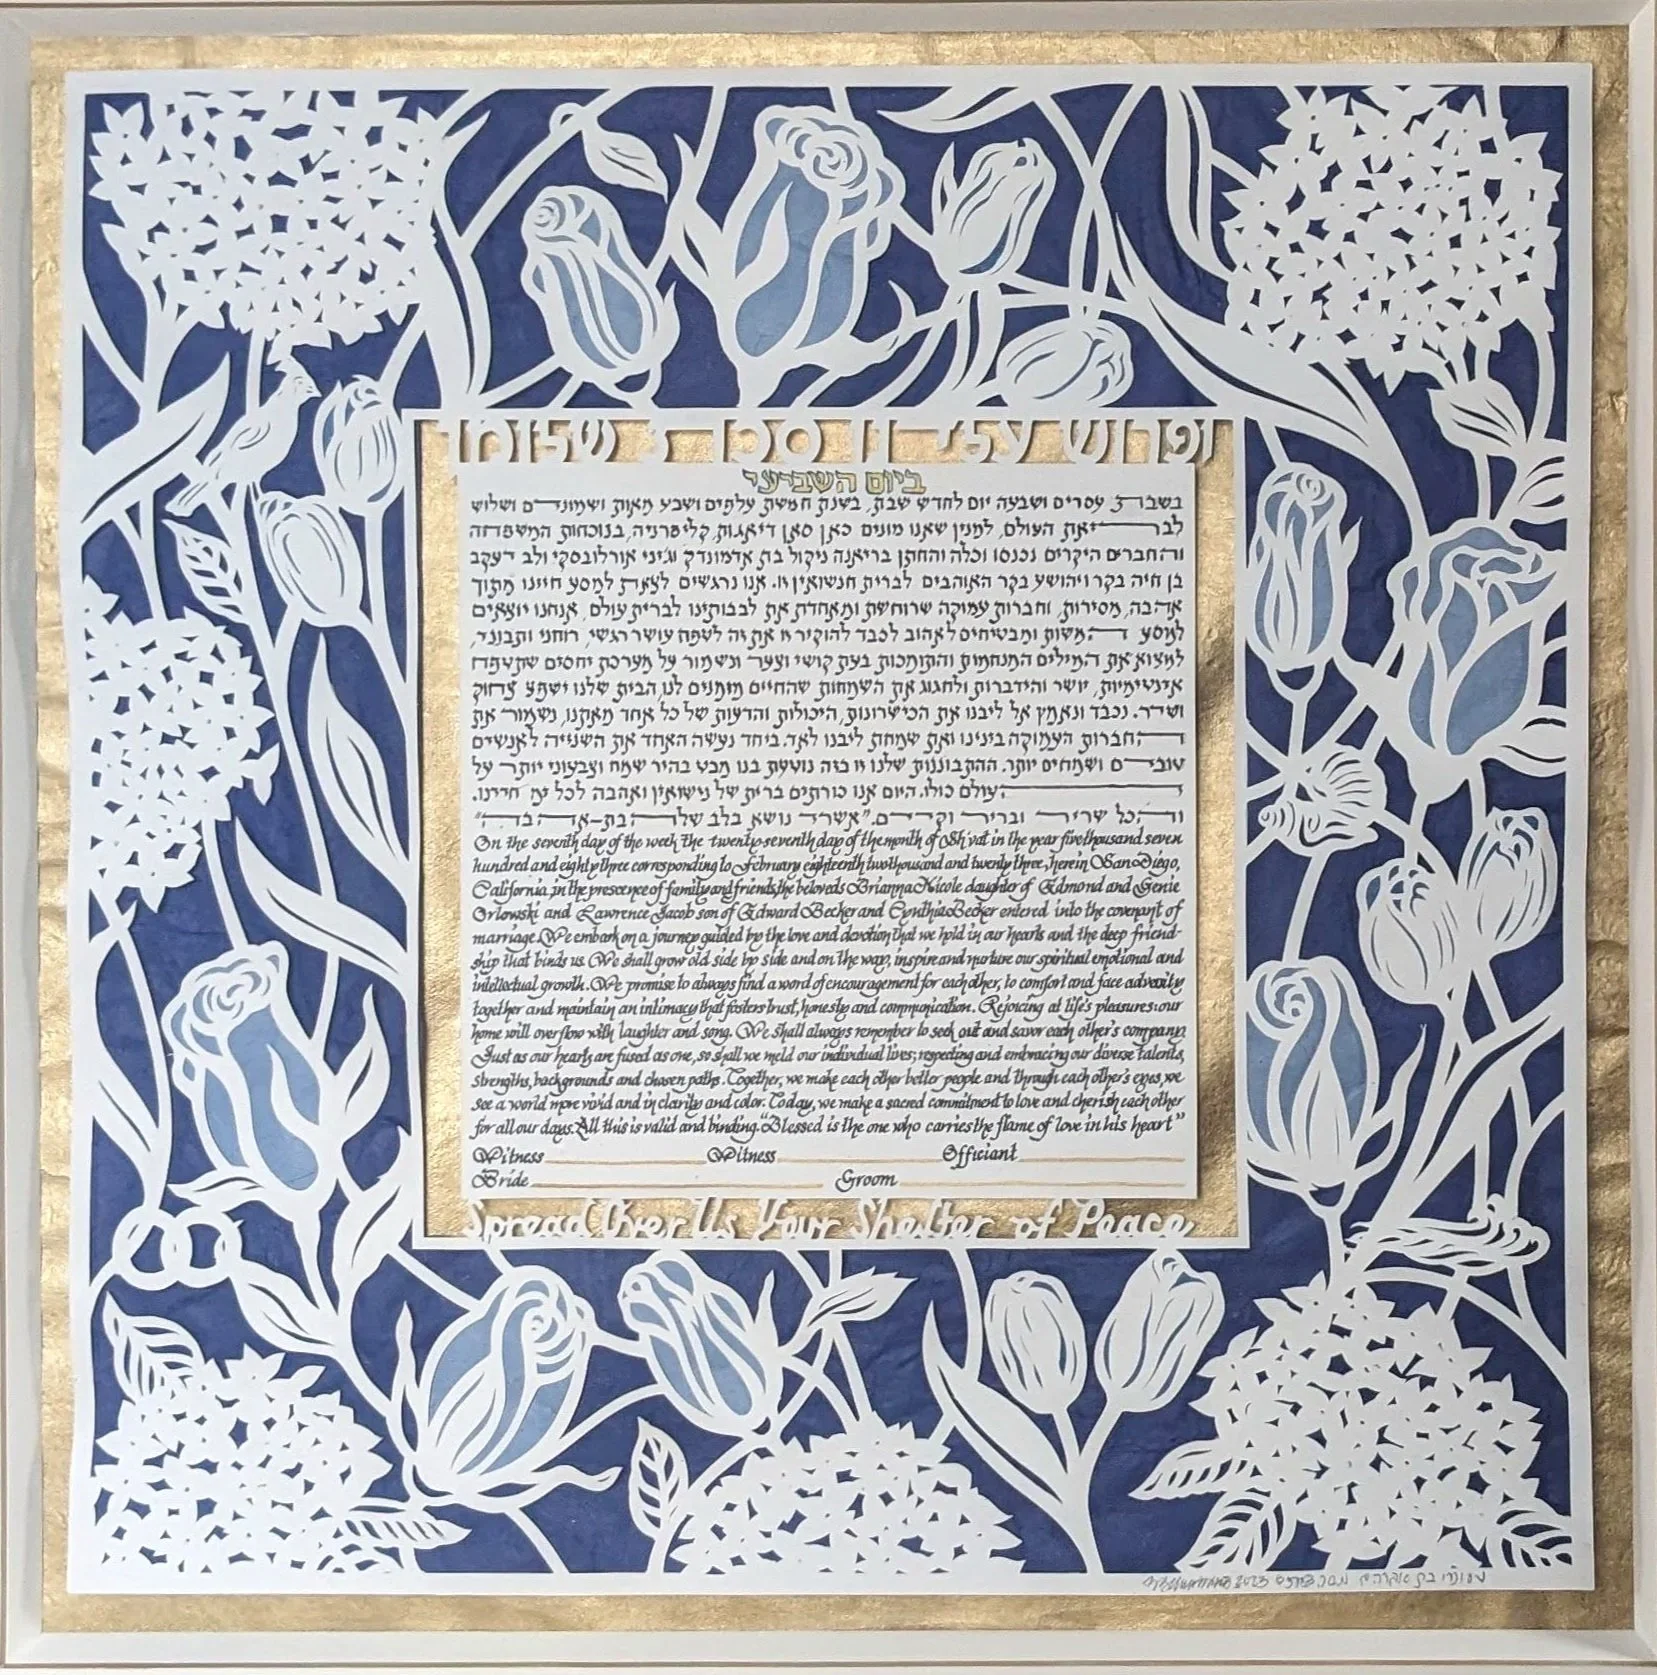 ופרוש עלינו סכת שלומך
ביום השביעי
בשבת עשרים ושבעה יום לחדש שבט, בשנת חמשת אלפים ושבע מאות ושמונים ושלוש
לבריאת העולם, למנין שאנו מונים כאן סאן דיאגו, קליפורניה, בנוכחות המשפחה
והחברים היקרים נכנסו וכלה והחתן בריאנה ניקול בת אדמונד וג'יני אורלובסקי
בן חיה בקר ויהושע בקר האוהבים לברית הנשואין זו. אנו נרגשים לצאת למסע חיינו מתוך
אהבה, מסירות, וחברות עמוקה שרוחשת ומאחדת את לבבותינו לברית עולם, אנחנו יוצאים
למסע המשותף ומבטיחים לאהוב לכבד להוקיר זו את זה לטפח עושר רגשי, רוחני ותבוני,
למצוא את המילים המנחמות והתומכות בעת קושי וצער ונשמור על מערכת יחסים שתטפח
אינטימיות, יושר והידברות ולחגוג את השמחות שהחיים מזמנים לנו, הבית שלנו ישפע צחוק
ושירה. נכבד ונאמץ אל ליבנו את הכישרונות, היכולות והדעות של כל אחד מאתנו, נשמור את
החברות העמוקה בינינו ואת שמחת ליבנו לאד. ביחד נעשה האחד את השנייה לאנשים
טובים ושמחים יותר. ההתבוננות שלנו זו בזה נוטעת בנו מבט בהיר שמח וצבעוני יותר על
העולם כולו. היום אנו כורתים ברית של נישואין ואהבה לכל ימי חיינו.
והכל שריר ובריר וקים. "אשרי נושא בלב שלהבת-אהבה"
On the seventh day of the week the twenty-seventh day of the month of Sh'vat in the year five thousand seven
hundred and eighty three corresponding to February eighteenth two thousand and twenty three, here in San Diego,
California, in the prescence of family and friends, the beloveds Brianna Nicole daughter of Edmond and Genie
Orlowski and Lawrence Jacob son of Edward Becker and Cynthia Becker entered into the covenant of
marriage. We embark on a journey guided by the love and devotion that we hold in our hearts and the deep friend-
ship that binds us. We shall grow old side by side and on the way, inspire and nurture our spiritual emotional and
intellectual growth. We promise to always find a word of encouragement for each other, to comfort and face adversity
together and maintain an intimacy that fosters trust, honesty and communication. Rejoicing at life's pleasures: our
home will overflow with laughter and song. We shall always remember to seek out and savor each other's company.
Just as our hearts are fused as one, so shall we meld our individual lives; respecting and embracing our diverse talents,
strengths, backgrounds and chosen paths. Together, we make each other better people and through each other's eyes, we
see a world more vivid and in clarity and color. Today, we make a sacred commitment to love and cherish each other
for all our days. All this is valid and binding. "Blessed is the one who carries the flame of love in his heart"
Witness Witness Officiant
Bride Groom
Spread Over Us Your Shelter of Peace
2023